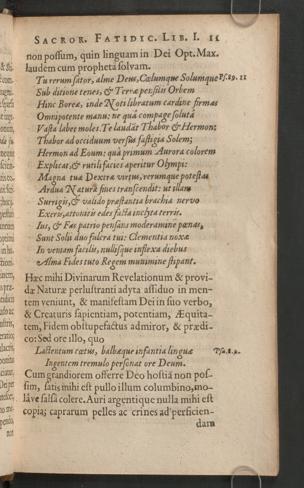 SACROR. FATIDIC. LIB. I. 11
non possum, quin linguam in Dei Opt. Max.
laudem cum propheta solvam.
Tu rerum sator, alme Deus, Cœlumque Solumque Ps. 89. 12
Sub ditione tenes, & Terræ pensilis Orbem
Hinc Boreæ, inde Noti libratum cardine firmas
Omnipotente manu: ne quâ compage solutâ
Vasta labet moles. Te laudat Thabor & Hermon;
Thabor ad occiduum versus fastigia Solem;
Hermon ad Eoum: quâ primum Aurora colorem
Explicat, & rutili facies aperitur Olympi:
Magna tua Dextræ virtus, rerumque potestas
Ardua Naturæ fines transcendit: ut illam
Surrigis, & valido præstantia brachia nervo
Exeris, attonitis edes facta inclyta terris.
Ius, & Fas patrio pensans moderamine pœnas,
Sunt Solii duo fulcra tui: Clementia noxæ
In veniam facilis, nullisque inflexa diebus
Alma Fides tuto Regem munimine stipant.
Hæc mihi Divinarum Revelationum & provi-
dæ Naturæ perlustranti adyta assiduo in men-
tem veniunt, & manifestam Dei in suo verbo,
& Creaturis sapientiam, potentiam, Æquita-
tem, Fidem obstupefactus admiror, & prædi-
co: Sed ore illo, quo
Lactentum cœtus, balbæque infantia linguæ Psa. 8. 2.
Ingentem tremulo personat ore Deum.
Cum grandiorem offerre Deo hostiã non pos-
sim, satis mihi est pullo illum columbino, mo-
lâve salsa colere. Auri argentique nulla mihi est
copia; caprarum pelles ac crines ad perficien-
dam